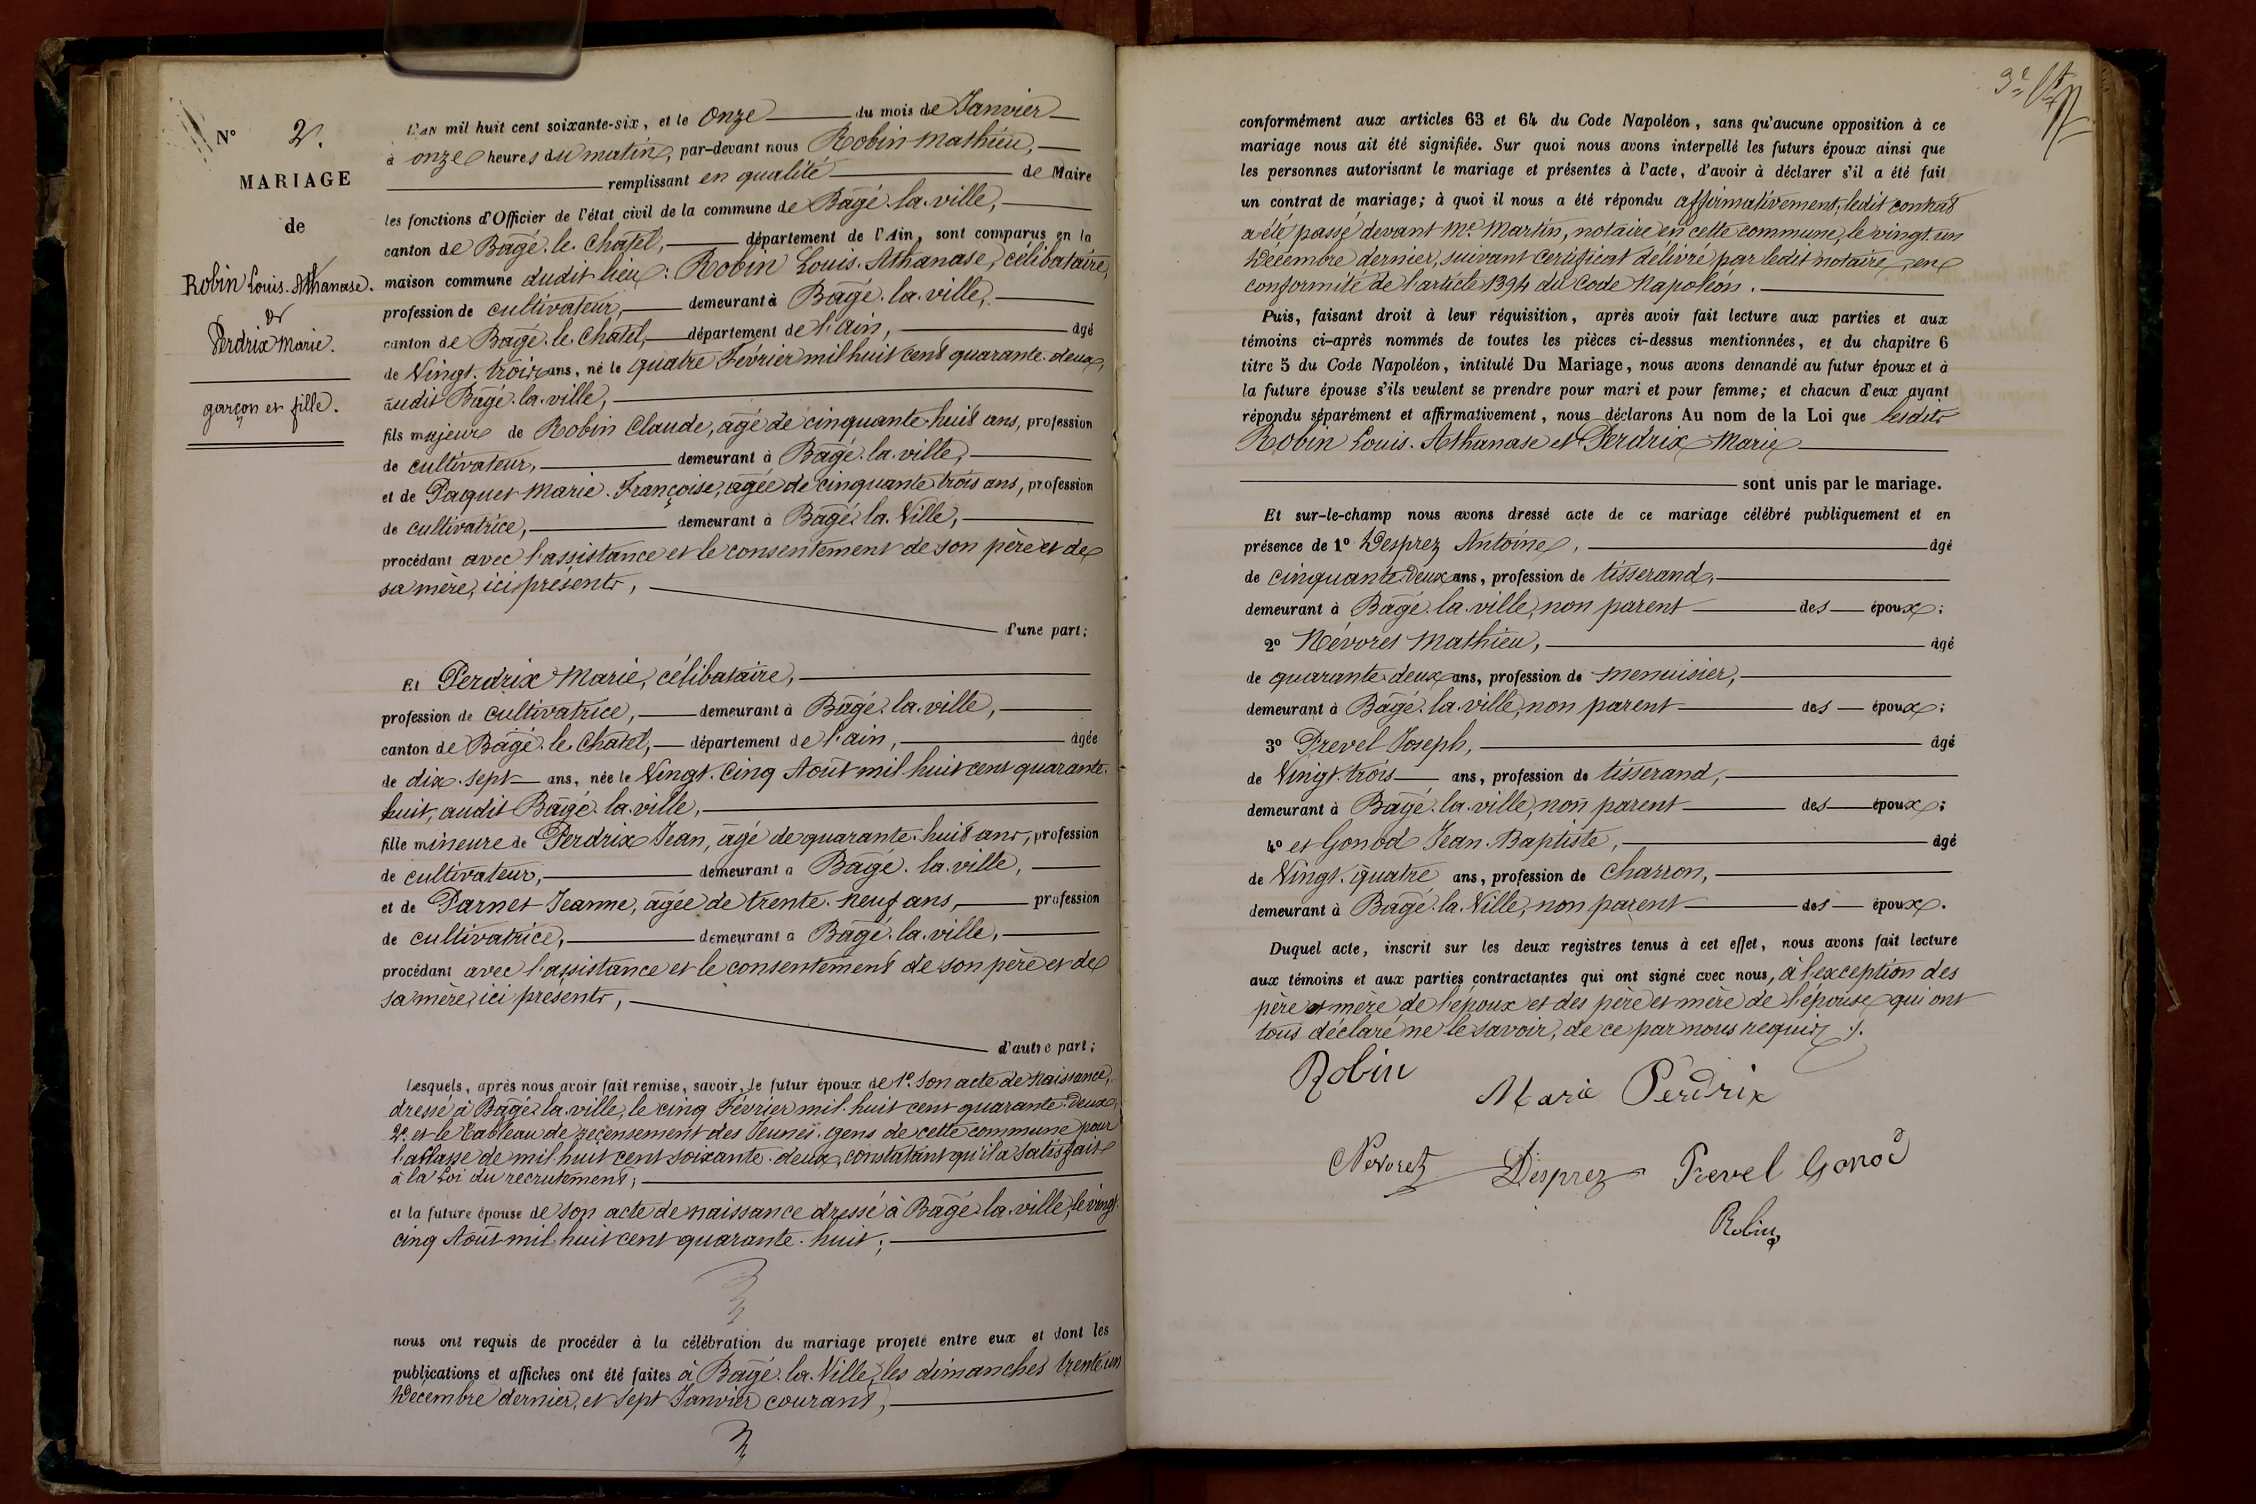 N° 2.
MARIAGE
de
Robin Louis. Athanase.
et
Perdrix Marie.
garçon et fille.
L'AN mil huit cent soixante-six, et le onze du mois de Janvier
à onze heures du matin, par-devant nous Robin Mathieu,
remplissant en qualité de Maire
les fonctions d'Officier de l'état civil de la commune de Bâgé. la. ville,
canton de Bâgé. le. Chatel, département de l'Ain, sont comparus en la
maison commune dudit lieu: Robin Louis. Athanase, célibataire,
profession de cultivateur, demeurant à Bâgé. la. ville,
canton de Bâgé. le. Chatel, département de l'ain, âgé
de Vingt. trois ans, né le quatre Février mil huit cent quarante. deux,
audit Bâgé. la. ville,
fils majeur de Robin Claude, âgé de cinquante. huit ans, profession
de cultivateur, demeurant à Bâgé. la. ville,
et de Paquet Marie. Françoise, âgée de cinquante trois ans, profession
de cultivatrice, demeurant à Bâgé. la. Ville,
procédant avec l'assistance et le consentement de son père et de
sa mère, ici présents,
d'une part;
Et Perdrix Marie, célibataire,
profession de cultivatrice, demeurant à Bâgé. la. ville,
canton de Bâgé. le. Chatel, département de l'ain, âgée
de dix. sept ans, née le Vingt. Cinq Août mil huit cent quarante.
huit, audit Bâgé. la. ville,
fille mineure de Perdrix Jean, âgé de quarante. huit ans, profession
de cultivateur, demeurant à Bâgé. la. ville,
et de Parnet Jeanne, âgée de trente. neuf ans, profession
de cultivatrice, demeurant à Bâgé. la. ville,
procédant avec l'assistance et le consentement de son père et de
sa mère, ici présents,
d'autre part;
Lesquels, après nous avoir fait remise, savoir, le futur époux de 1° Son acte de Naissance,
dressé à Bâgé. la. ville, le cinq Février mil. huit cent quarante. Deux,
2° et le Tableau de recensement des Jeunes. gens de cette commune pour
la classe de mil huit cent soixante. deux, constatant qu'il a Satisfait
à la Loi du recrutement;
et la future épouse de Son acte de naissance dressé à Bâgé. la. ville, le vingt.
cinq Août mil huit cent quarante. huit;
nous ont requis de procéder à la célébration du mariage projeté entre eux et dont les
publications et affiches ont été faites à Bâgé. la. Ville, les dimanches trente un
Décembre dernier, et Sept Janvier courant,
3e
conformément aux articles 63 et 64 du Code Napoléon, sans qu'aucune opposition à ce
mariage nous ait été signifiée. Sur quoi nous avons interpellé les futurs époux ainsi que
les personnes autorisant le mariage et présentes à l'acte, d'avoir à déclarer s'il a été fait
un contrat de mariage; à quoi il nous a été répondu affirmativement, ledit contrat
a été passé devant Me Martin, notaire en cette commune, le vingt. un
Décembre dernier, suivant Certificat délivré par ledit notaire, en
conformité de l'article 1394 du Code Napoléon.
Puis, faisant droit à leur réquisition, après avoir fait lecture aux parties et aux
témoins ci-après nommés de toutes les pièces ci-dessus mentionnées, et du chapitre 6
titre 5 du Code Napoléon, intitulé Du Mariage, nous avons demandé au futur époux et à
la future épouse s'ils veulent se prendre pour mari et pour femme; et chacun d'eux ayant
répondu séparément et affirmativement, nous déclarons Au nom de la Loi que lesdits
Robin Louis. Athanase et Perdrix Marie
sont unis par le mariage.
Et sur-le-champ nous avons dressé acte de ce mariage célébré publiquement et en
présence de 1° Desprez Antoine, âgé
de cinquante. Deux ans, profession de tisserand,
demeurant à Bâgé. la. ville, non parent des époux;
2° Névoret Mathieu, âgé
de quarante. deux ans, profession de menuisier,
demeurant à Bâgé. la. ville, non parent des époux;
3° Prevel Joseph, âgé
de Vingt. trois ans, profession de tisserand,
demeurant à Bâgé. la. ville, non parent des époux;
4° et Gonod Jean. Baptiste, âgé
de Vingt. quatre ans, profession de Charron,
demeurant à Bâgé. la. Ville, non parent des époux.
Duquel acte, inscrit sur les deux registres tenus à cet effet, nous avons fait lecture
aux témoins et aux parties contractantes qui ont signé avec nous, à l'exception des
père et mère de l'époux et des père et mère de l'épouse qui ont
tous déclaré ne le savoir, de ce par nous requis ./.
Robin
Marie Perdrix
Nevoret Desprez Prevel Gonod
Robin